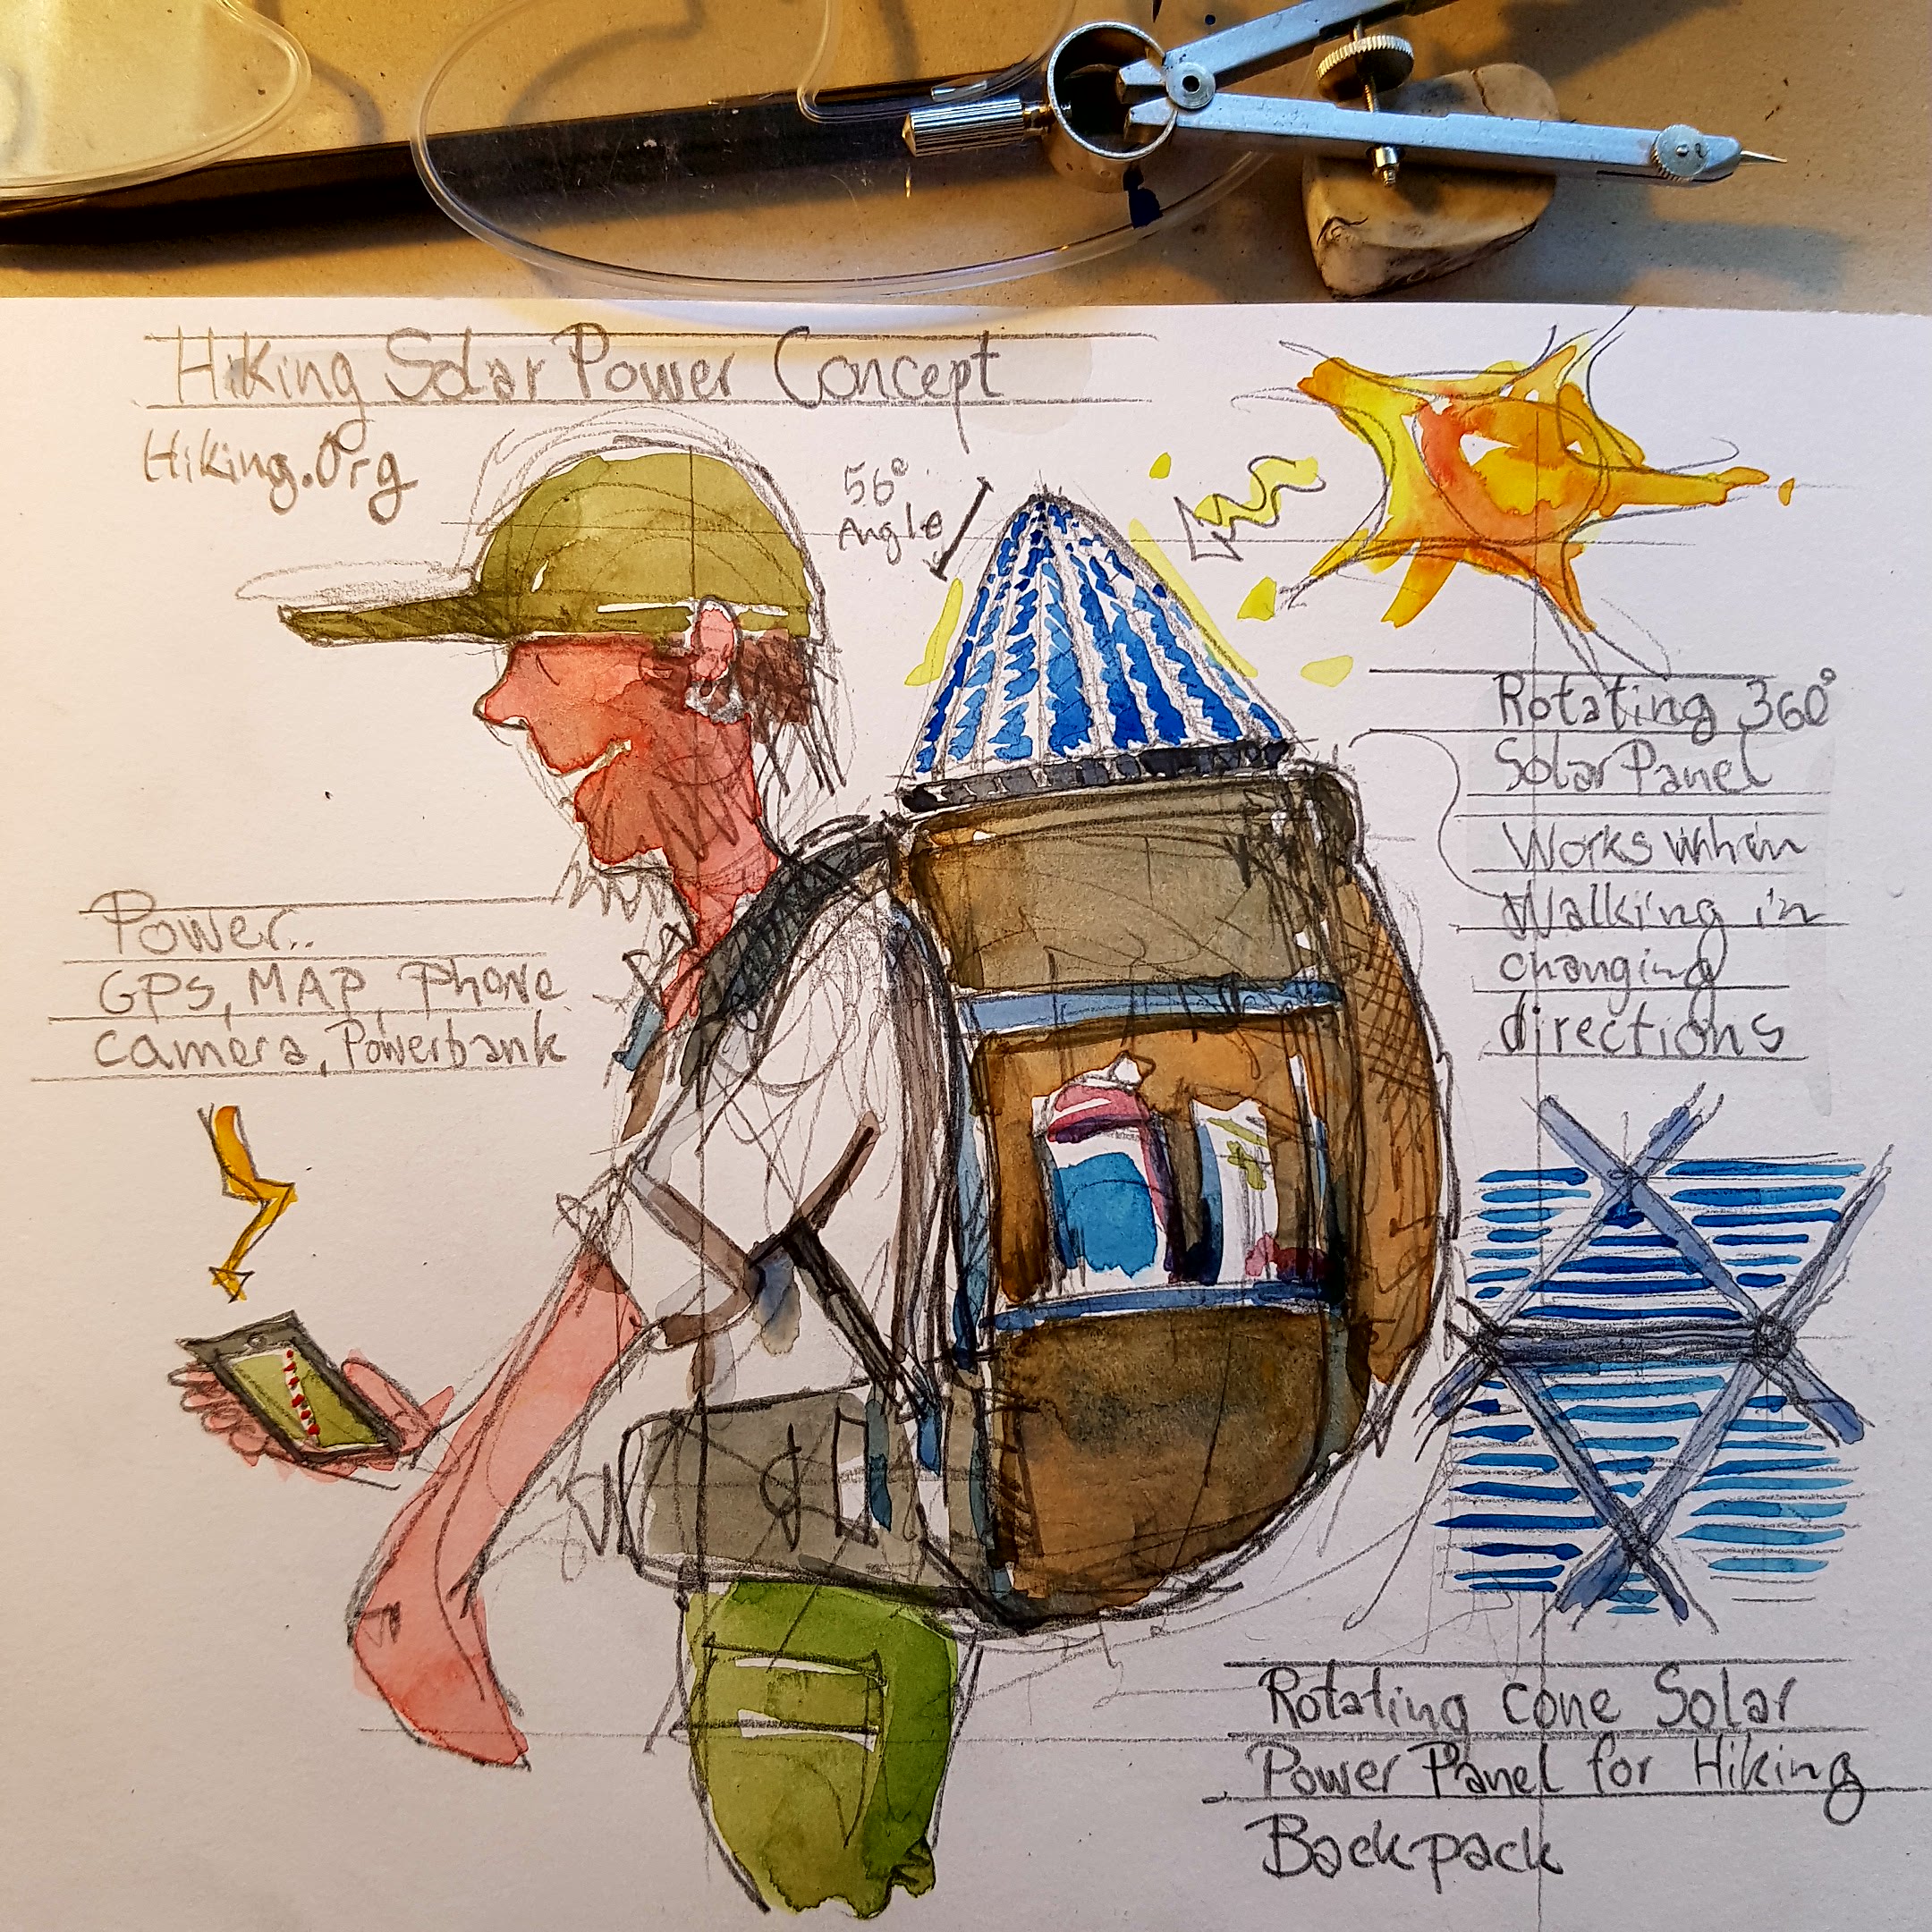 Hiking Solar Power Concept
Hiking.Org
56°
Angle
Rotating 360°
Solar Panel
Works when
Walking in
changing
directions
Power..
GPS, MAP, Phone
camera, Powerbank
Rotating cone Solar
Power Panel for Hiking
Backpack